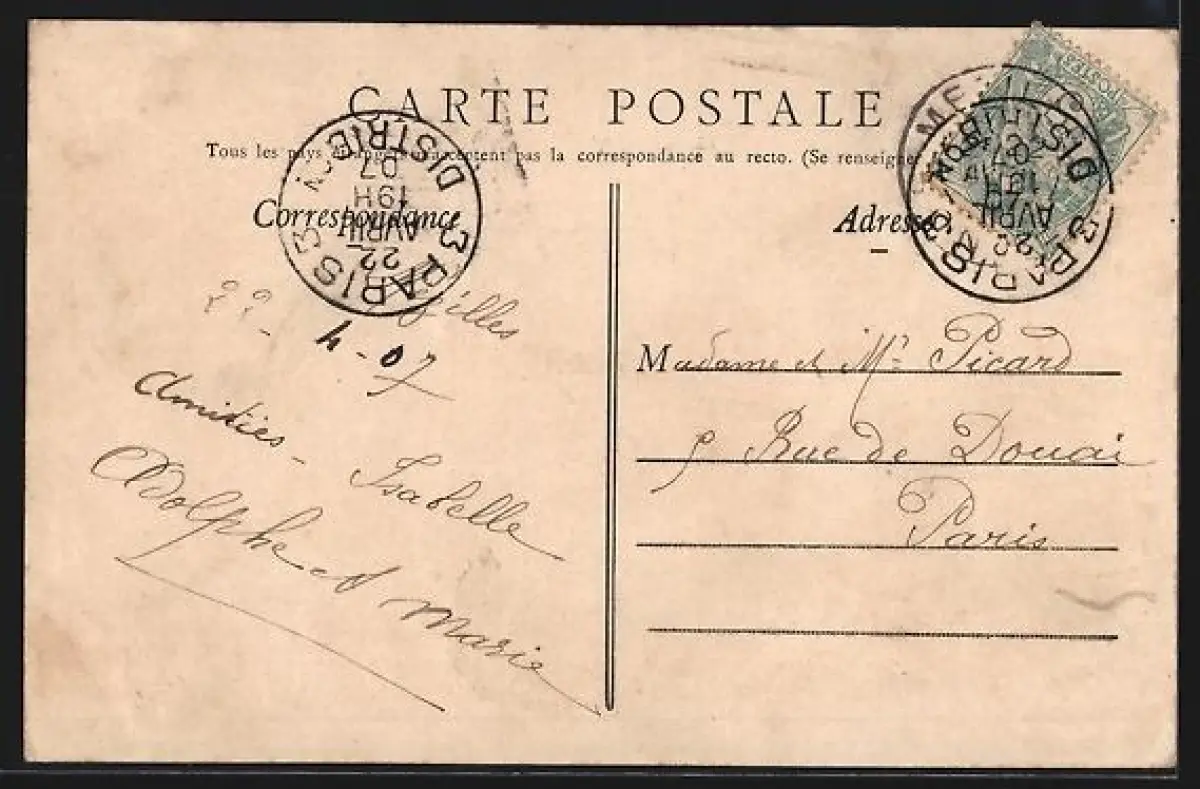 CARTE POSTALE
Tous les pays étrangers n'acceptent pas la correspondance au recto. (Se renseigner
Correspondance
Adresse
3 PARIS 3
DISTRIB
22
AVRIL
19H
07
3 PARIS 3
DISTRIB
22
AVRIL
07
22 - 4 - 07
Amitiés -
Isabelle
Adolphe et Marie
Madame et Mr Picard
5 Rue de Douai
Paris